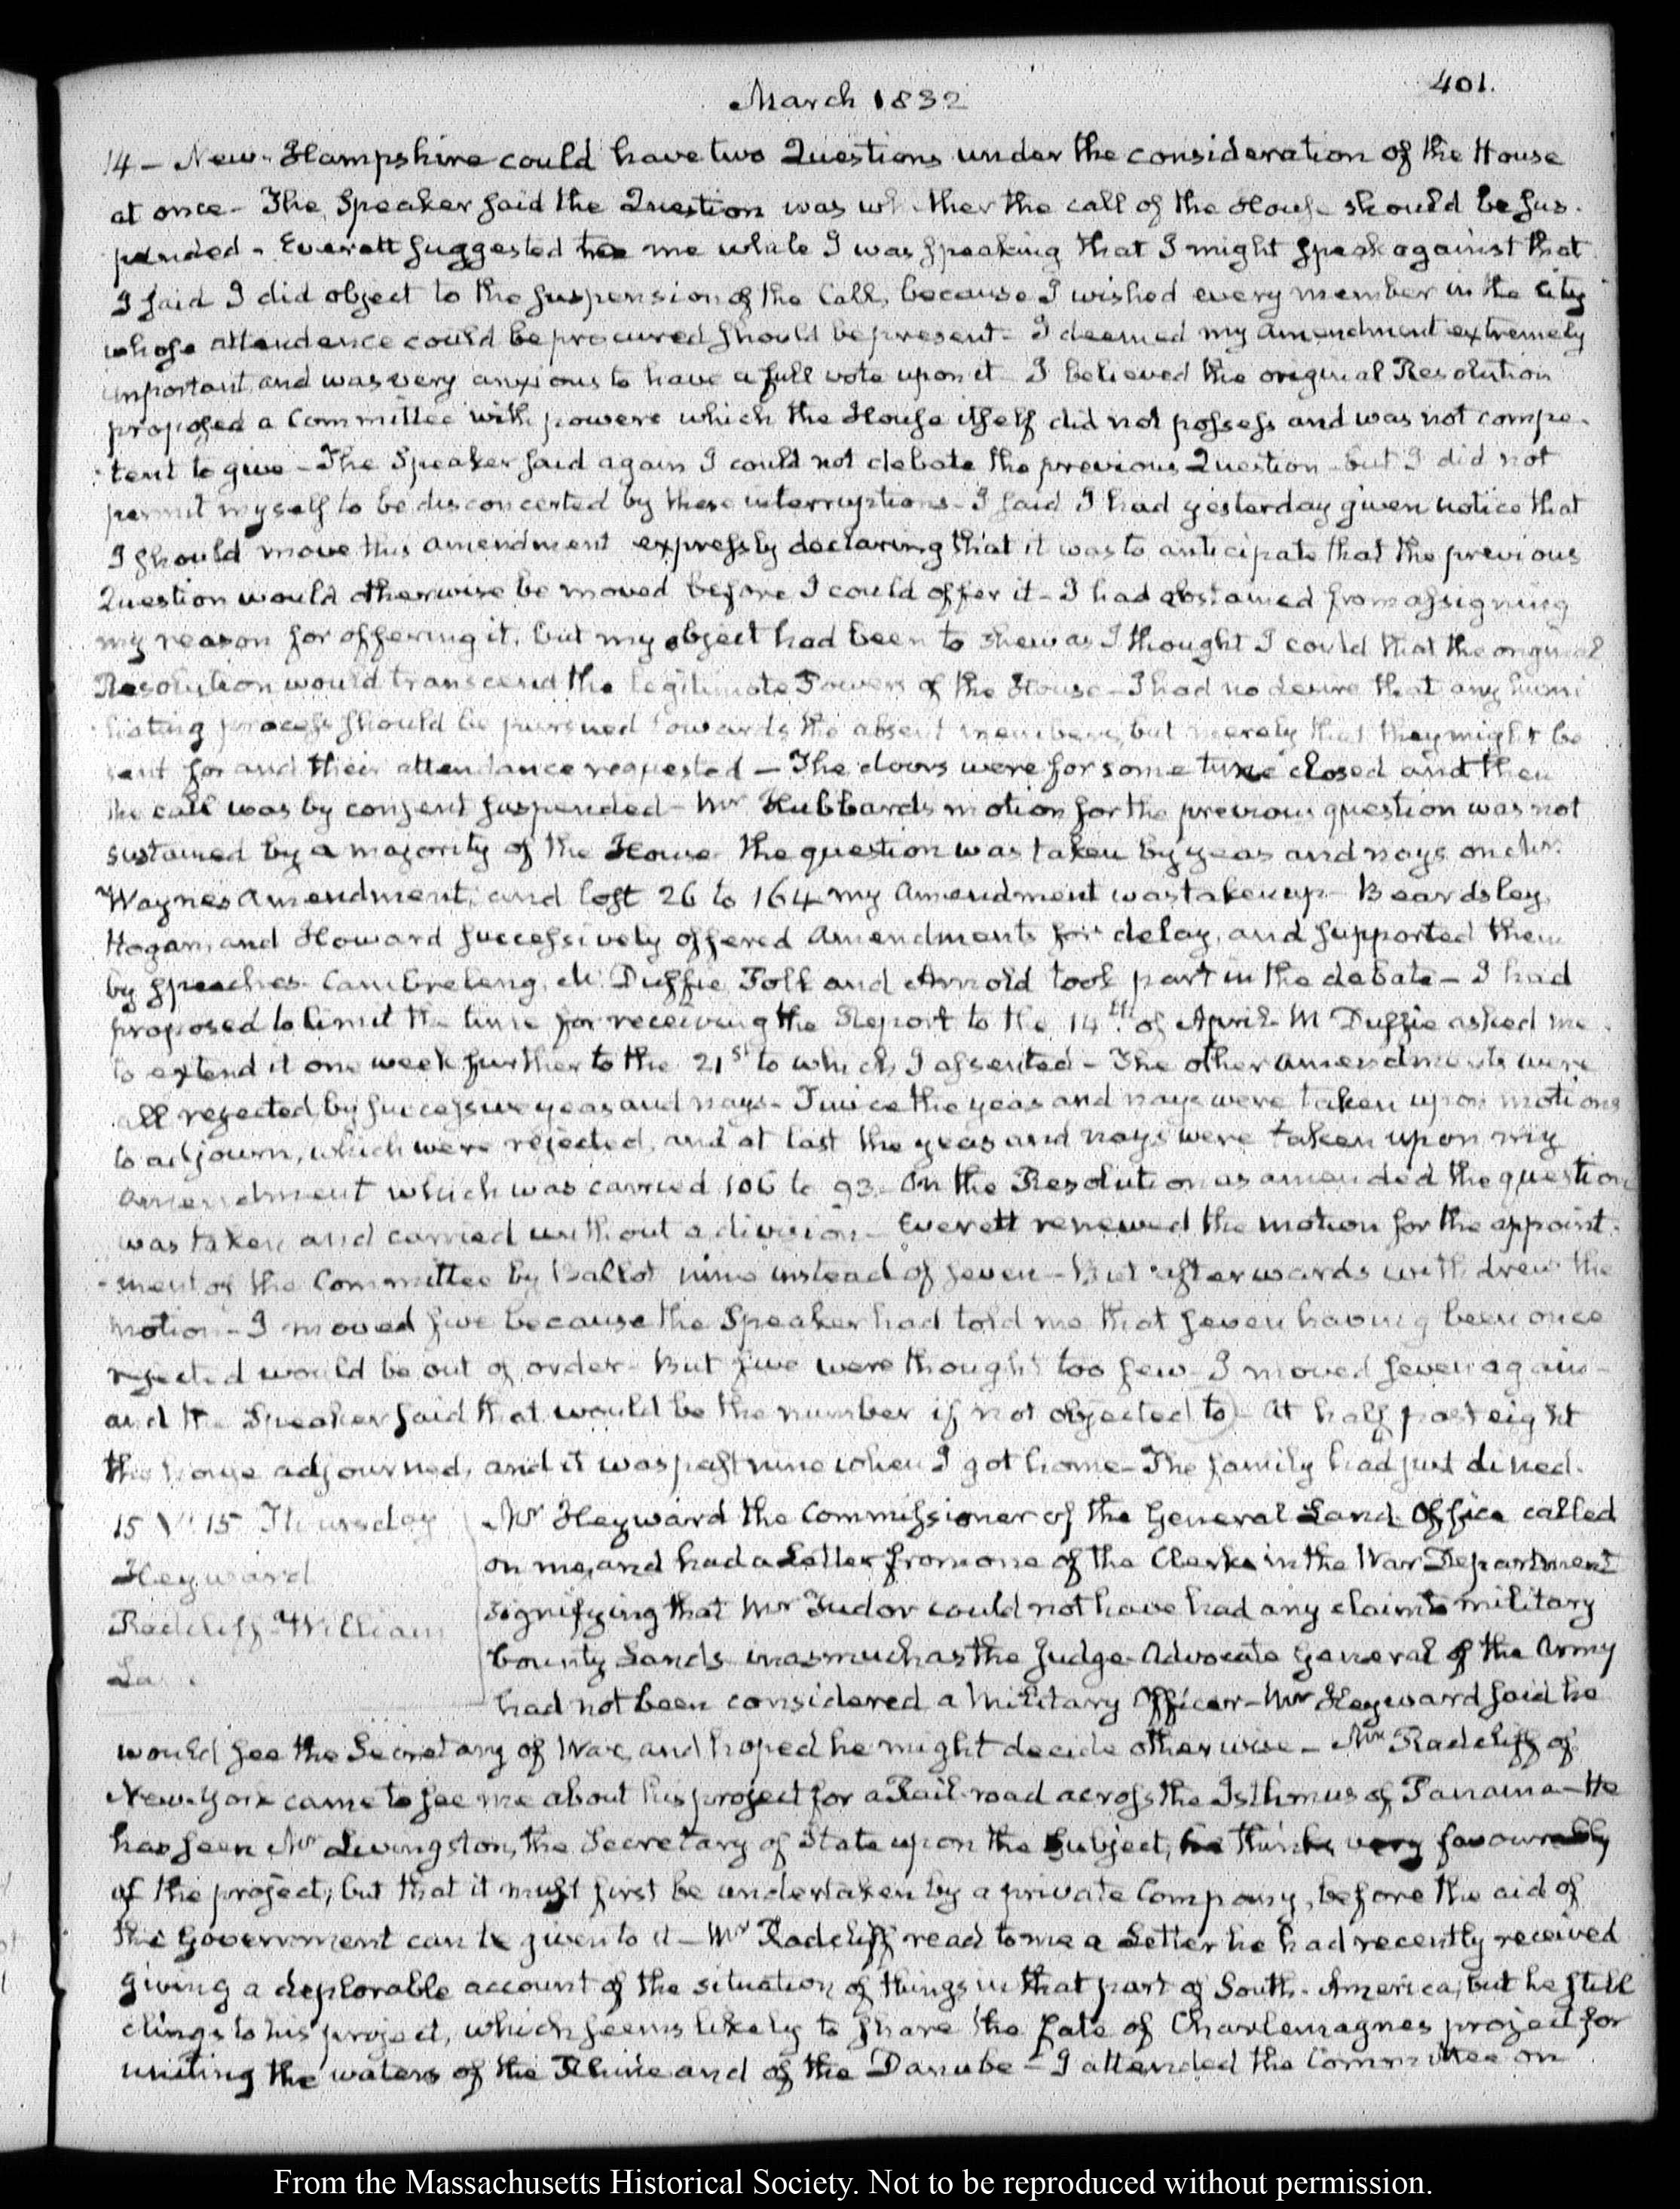 401.
March 1832
14 - New-Hampshire could have two Questions under the consideration of the House
at once - The Speaker said the Question was whether the call of the House should be sus-
pended - Everett suggested to me while I was speaking that I might speak against that
I said I did object to the suspension of the Call, because I wished every member in the City
whose attendance could be procured should be present - I deemed my amendment extremely
important, and was very anxious to have a full vote upon it - I believed the original Resolution
proposed a Committee with powers which the House itself did not possess and was not compe-
tent to give - The Speaker said again I could not debate the previous Question - but I did not
permit myself to be disconcerted by these interruptions - I said I had yesterday given notice that
I should move this amendment expressly declaring that it was to anticipate that the previous
Question would otherwise be moved before I could offer it - I had abstained from assigning
my reason for offering it, but my object had been to shew as I thought I could that the original
Resolution would transcend the legitimate Powers of the House - I had no desire that any humi
liating process should be pursued towards the absent members, but merely that they might be
sent for and their attendance requested - The doors were for some time closed and then
the call was by consent suspended - Mr Hubbards motion for the previous question was not
sustained by a majority of the House. The question was taken by yeas and nays on Mr.
Waynes amendment, and lost 26 to 164 my amendment was taken up - Beardsley,
Hogan, and Howard successively offered Amendments for delay, and supported them
by speeches. Cambreleng, Mc Duffie Polk and Arnold took part in the debate - I had
proposed to limit the time for receiving the Report to the 14th. of April - McDuffie asked me
to extend it one week further to the 21st to which I assented - The other amendments were
all rejected by successive yeas and nays - Twice the yeas and nays were taken upon motions
to adjourn, which were rejected, and at last the yeas and nays were taken upon my
amendment which was carried 106 to 93 - On the Resolution as amended the question
was taken and carried without a division - Everett renewed the motion for the appoint-
-ment of the Committee by Ballot nine instead of seven - But afterwards withdrew the
motion - I moved five because the Speaker had told me that seven having been once
rejected would be out of order - But five were thought too few - I moved seven again -
and the Speaker said that would be the number if not objected to) - At half past eight
the house adjourned, and it was past nine when I got home - The family had just dined.
15 V. 15 Thursday
Heyward
Radcliff William
Mr Heyward the Commissioner of the General Land Office called
on me, and had a Letter from one of the Clerks in the War Department
signifying that Mr Tudor could not have had any claim to military
bounty Lands inasmuch as the Judge-Advocate General of the Army
had not been considered a Military Officer - Mr Heyward said he
would see the Secretary of War, and hoped he might decide otherwise - Mr Radcliff of
New-York came to see me about his project for a Rail-road across the Isthmus of Panama - He
has seen Mr Livingston, the Secretary of State upon the subject, he thinks very favourably
of the project; but that it must first be undertaken by a private Company, before the aid of
the Government can be given to it - Mr Radcliff read to me a Letter he had recently received
giving a deplorable account of the situation of things in that part of South-America, but he still
clings to his project, which seems likely to share the fate of Charlemagnes project for
uniting the waters of the Rhine and of the Danube - I attended the Committee on
From the Massachusetts Historical Society. Not to be reproduced without permission.